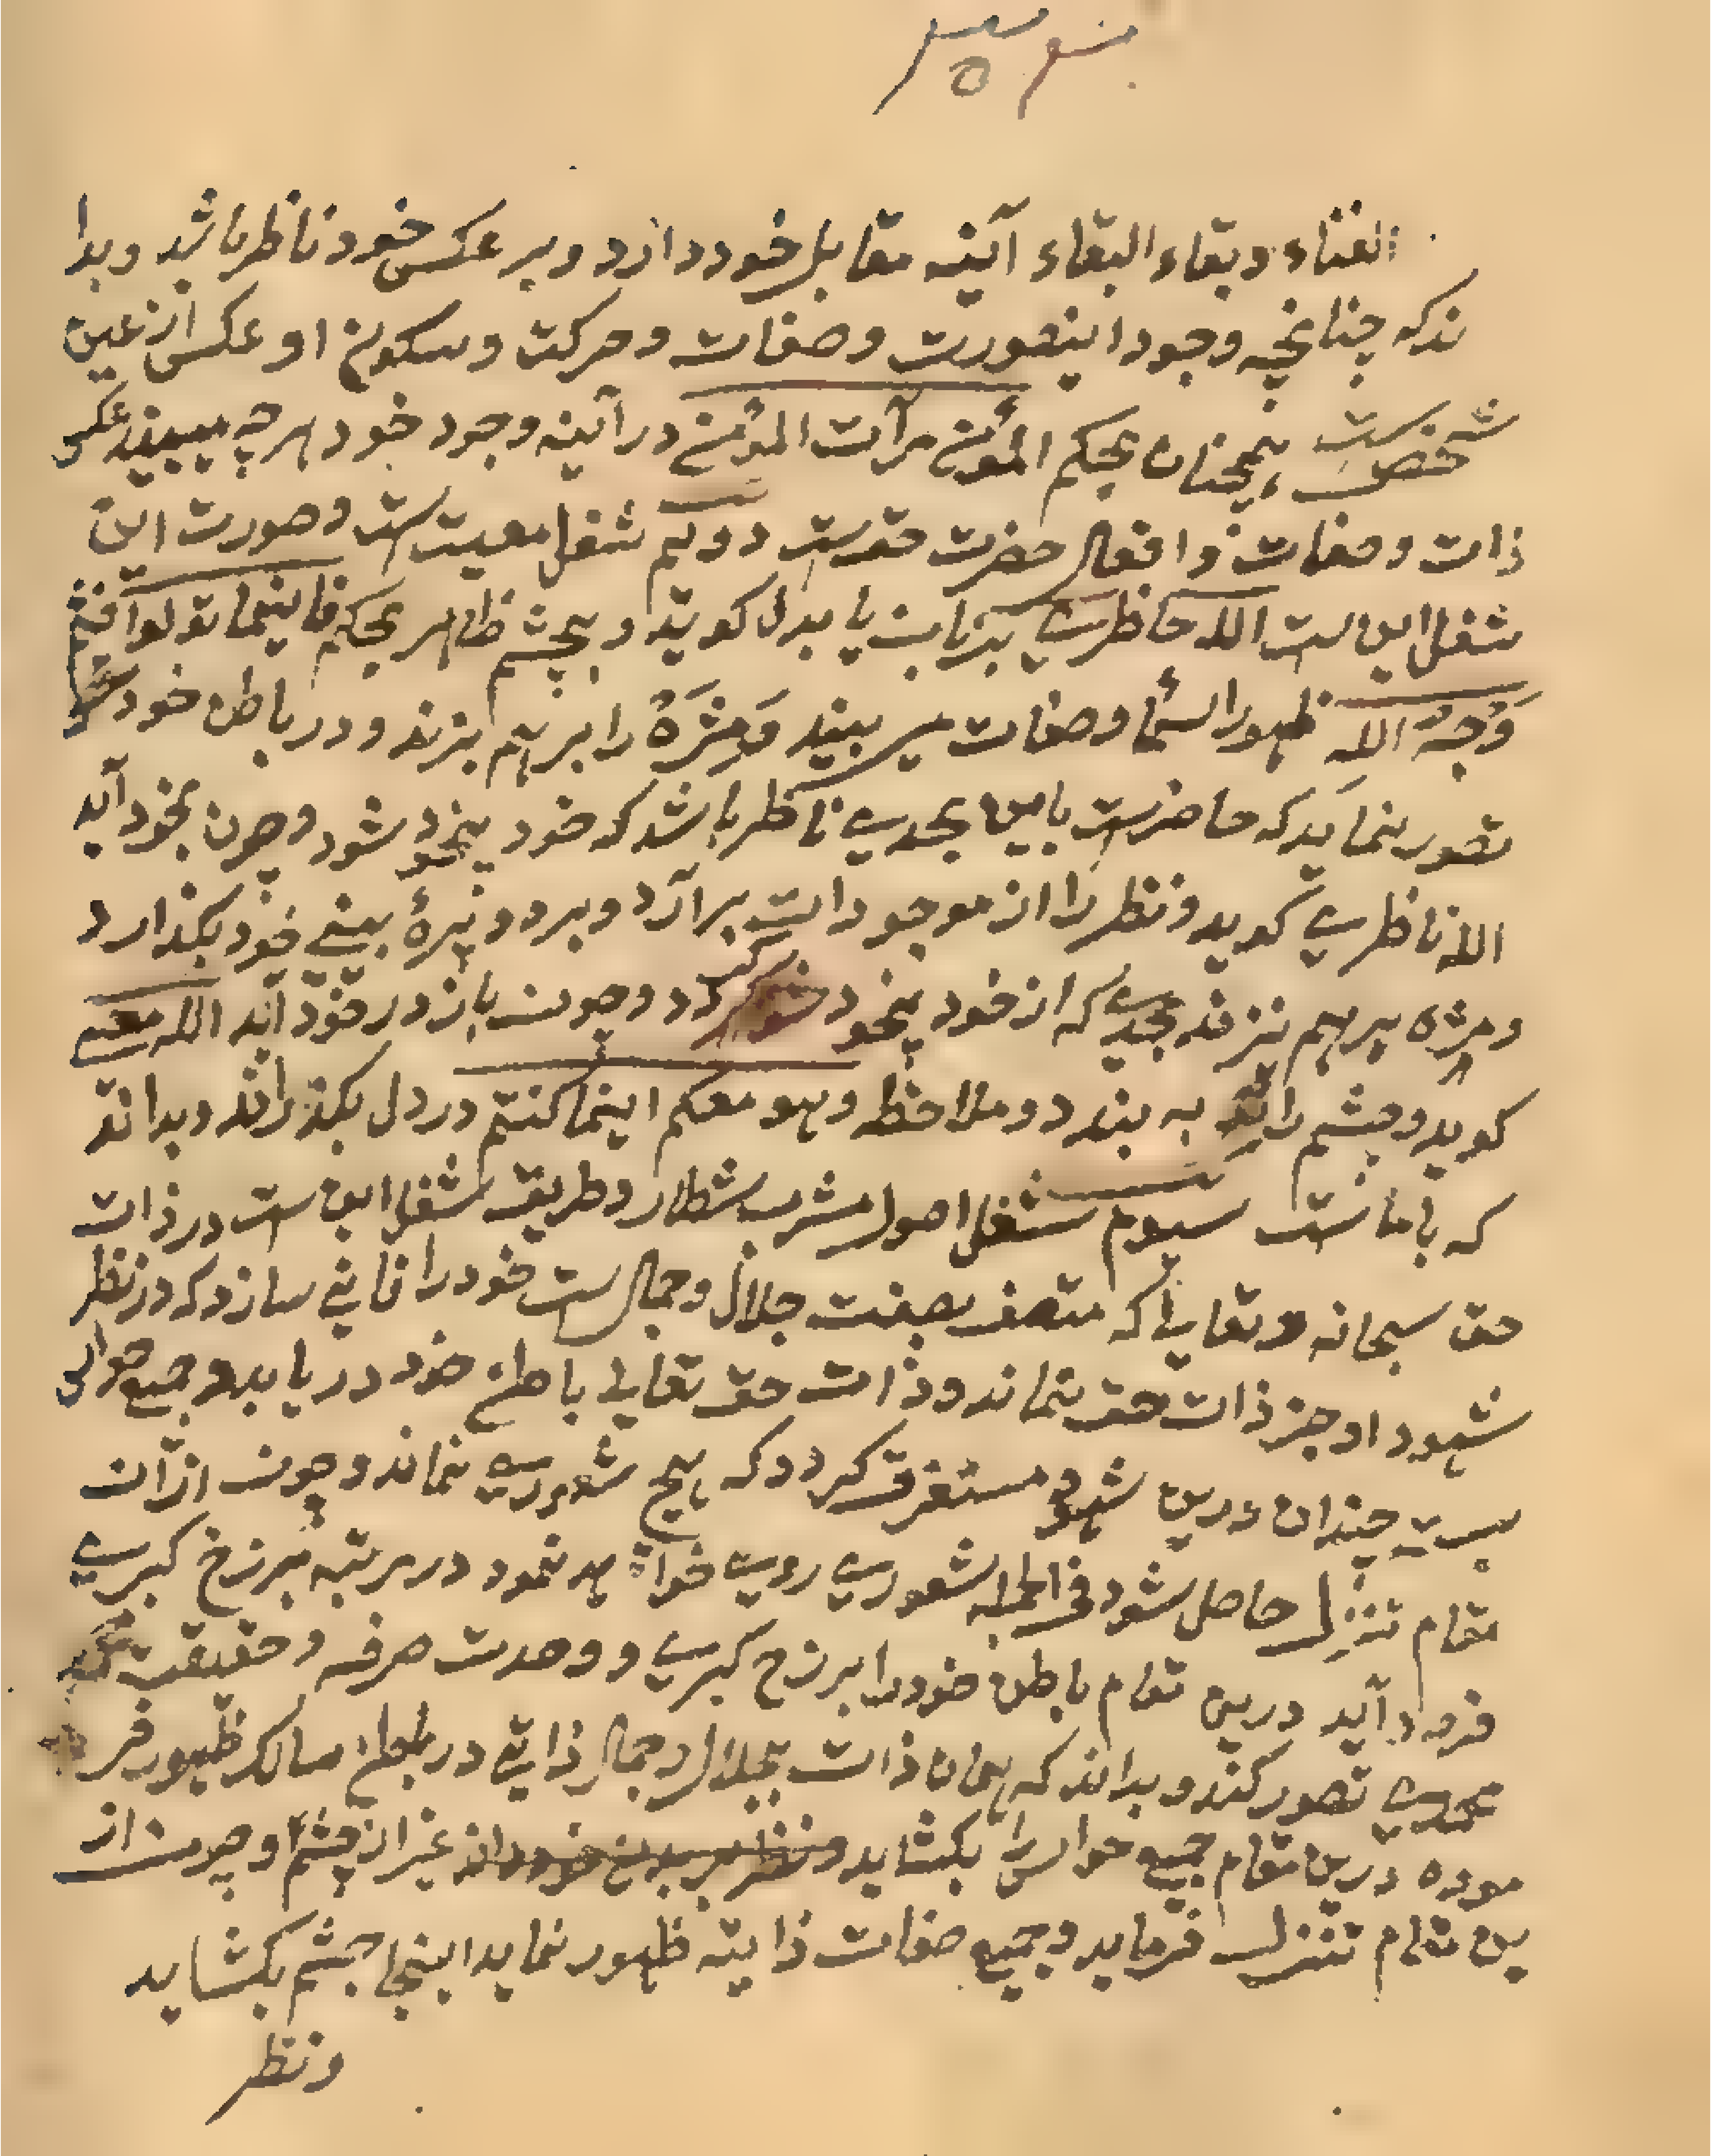 الفناء و بقاء البقاء آئینه مقابل خود دارد و بر عکس خود ناظر باشد و بدا
ند که چنانچه وجود اینصورت و صفات و حرکت و سکون او عکس از عین
شخص ست همچنان بحکم المؤمن مرآت المؤمن در آئینه وجود خود هرچه میبیند عکس
ذات و صفات و افعال حضرت حق ست دویم شغل معیت ست و صورت این
شغل این ست الله حاظری بزبان یا بدل کوید و بچشم ظاهر بحکم فاینما تولوا فثم
وَجهُ الله ظهور اسما و صفات می بیند و مژهٔ را بر هم بزند و در باطن خود
تصور نماید که حاضرست باین بحدی ناظر باشد که خود بیخود شود و چون بخود آید
الله ناظری کوید و نظر را از موجودات بر آرد و بر دو نیرهٔ بینی خود بکذارد
و مژه بر هم نزند بحدی که از خود بیخود کردد و چون باز در خود آید الله معی
کوید و چشم را به بندد و ملاحظه و هو معکم اینما کنتم در دل بکذراند و بداند
که با ماست سیوم شغل اصول مشرب شطار و طریق شغل این ست در ذات
حق سبحانه و تعالی که متصف بصفت جلال و جمال ست خود را فانی سازد که در نظر
شهود او جز ذات حق نماند و ذات حق تعالی باطن خود دریابد و جمیع حواس
بسته چندان درین شهود مستغرق کردد که هیچ شعوری نماند و چون از آن
مقام تنزل حاصل شود فی الجمله شعوری روی خواهد نمود در مرتبه برزخ کبری
فرود آید درین مقام باطن خود را برزخ کبری و وحدت صرفه و حقیقت
محمدی تصور کند و بداند که همان ذات بجلال و جمال ذاتی در باطن سالک ظهور فر
موده درین مقام جمیع حواس را بکشاید و نظر بر بدن خود داند غیر از چشم و چون از
ین مقام تنزل فرماید و جمیع صفات ذاتیه ظهور نماید اینجا چشم بکشاید
و نظر